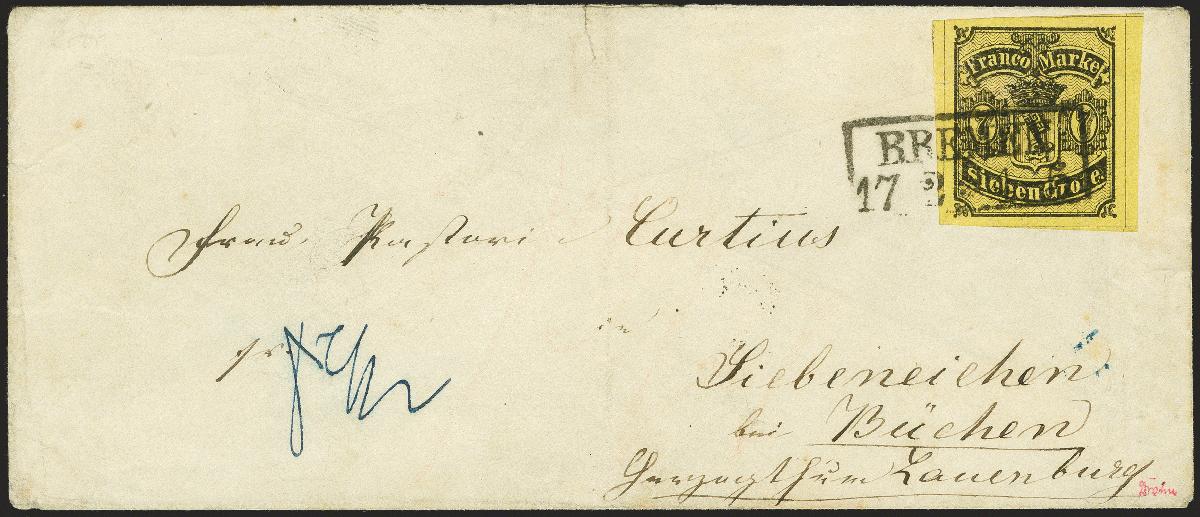 Franco Marke
7 7
Sieben Grote.
BREMEN
17 2
Frau Pastorin Curtius
in
fr.
Siebeneichen
bei Büchen
Herzogthum Lauenburg